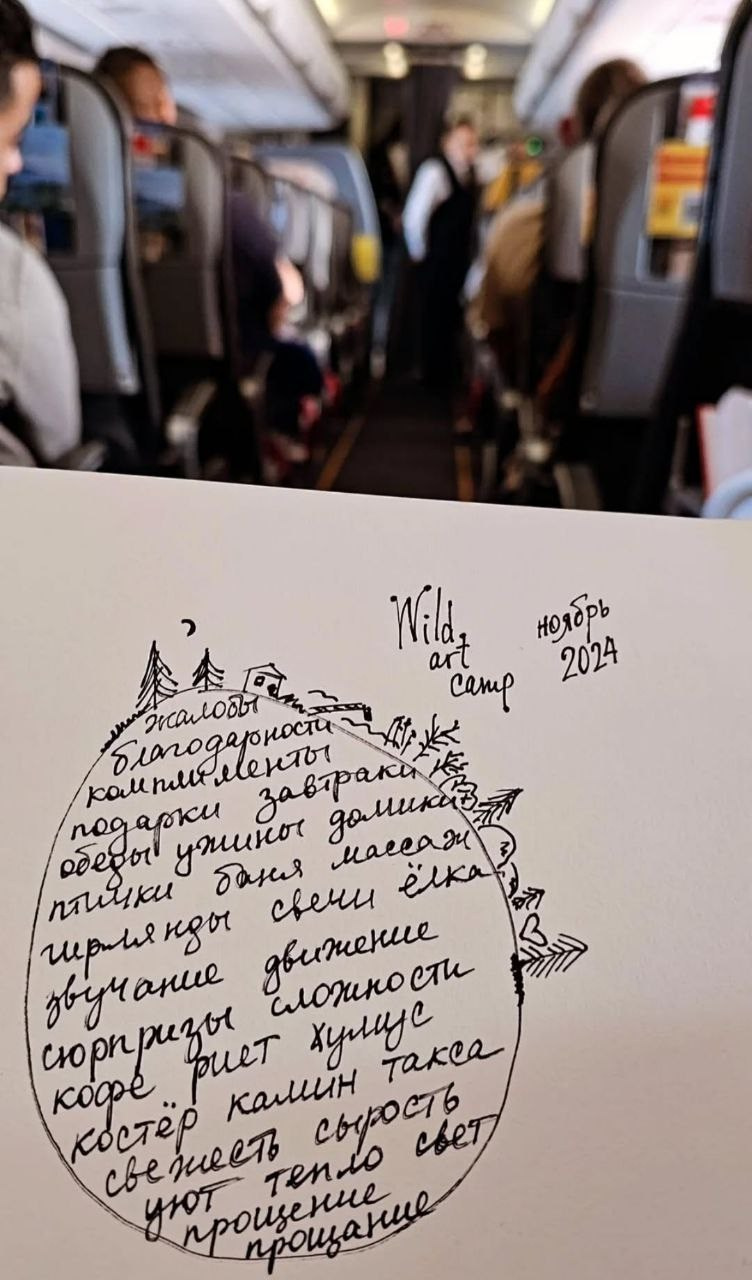 Wild
art
camp
ноябрь
2024
жалобы
благодарности
комплименты
подарки завтраки
обеды ужины домики
птички баня массаж
гирлянды свечи ёлка
звучание движение
сюрпризы сложности
кофе риет хулиус
костёр камин такса
свежесть сырость
уют тепло свет
прощение
прощание